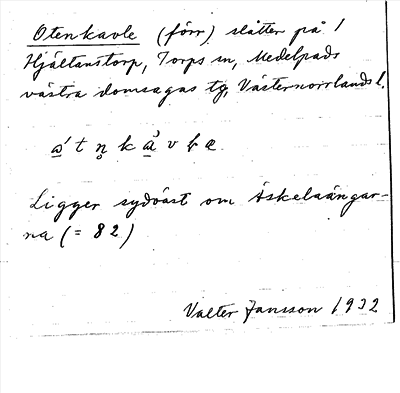 Otenkavle (förr) slåtter på /
Hjältanstorp, Torps sn, Medelpads
västra domsagas tg, Västernorrlands l.
Ligger sydväst om Äskelaängar-
na (= 82)
Valter Jansson 1932